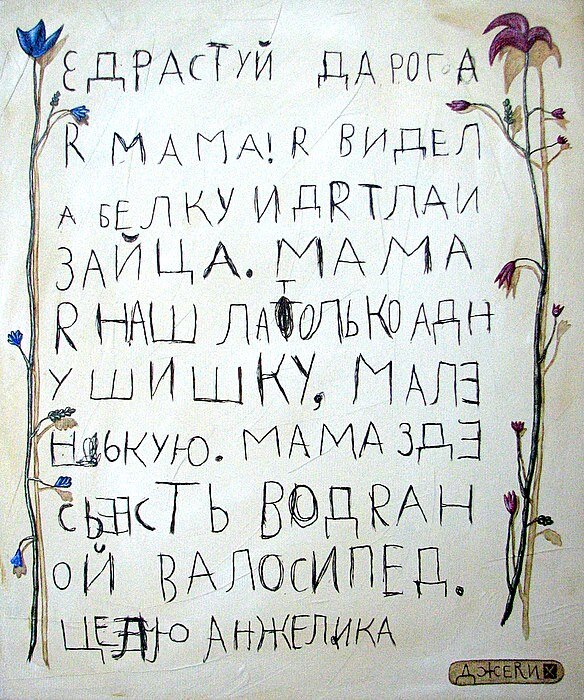 ЗДРАСТУЙ ДАРОГА
Я МАМА! Я ВИДЕЛ
А БЕЛКУ И ДЯТЛА И
ЗАЙЦА. МАМА
Я НАШ ЛА ТОЛЬКО АДН
У ШИШКУ, МАЛЕ
НЬКУЮ. МАМА ЗДЕ
СЬ ЕСТЬ ВОДЯАН
ОЙ ВАЛОСИПЕД.
ЦЕЛЮ АНЖЕЛИКА
ДЖЕЯИХ